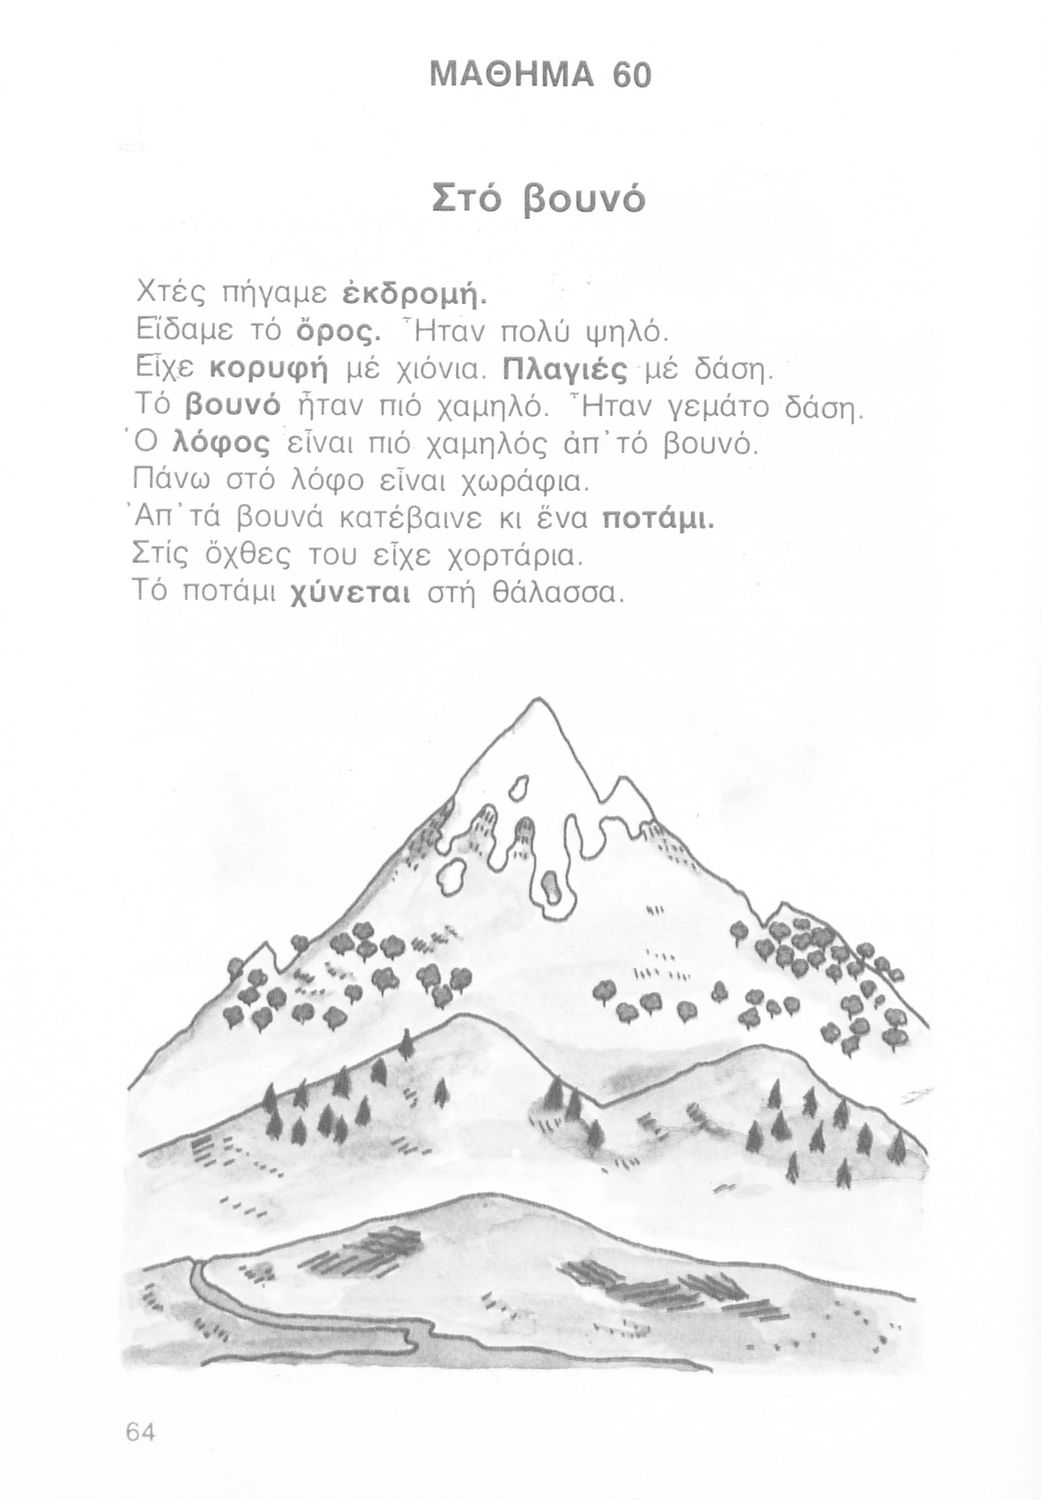 ΜΑΘΗΜΑ 60
Στό βουνό
Χτές πήγαμε ἐκδρομή.
Εἴδαμε τό ὄρος. Ἦταν πολύ ψηλό.
Εἶχε κορυφή μέ χιόνια. Πλαγιές μέ δάση.
Τό βουνό ἦταν πιό χαμηλό. Ἦταν γεμάτο δάση.
Ὁ λόφος εἶναι πιό χαμηλός ἀπ' τό βουνό.
Πάνω στό λόφο εἶναι χωράφια.
Ἀπ' τά βουνά κατέβαινε κι ἕνα ποτάμι.
Στίς ὄχθες του εἶχε χορτάρια.
Τό ποτάμι χύνεται στή θάλασσα.
64